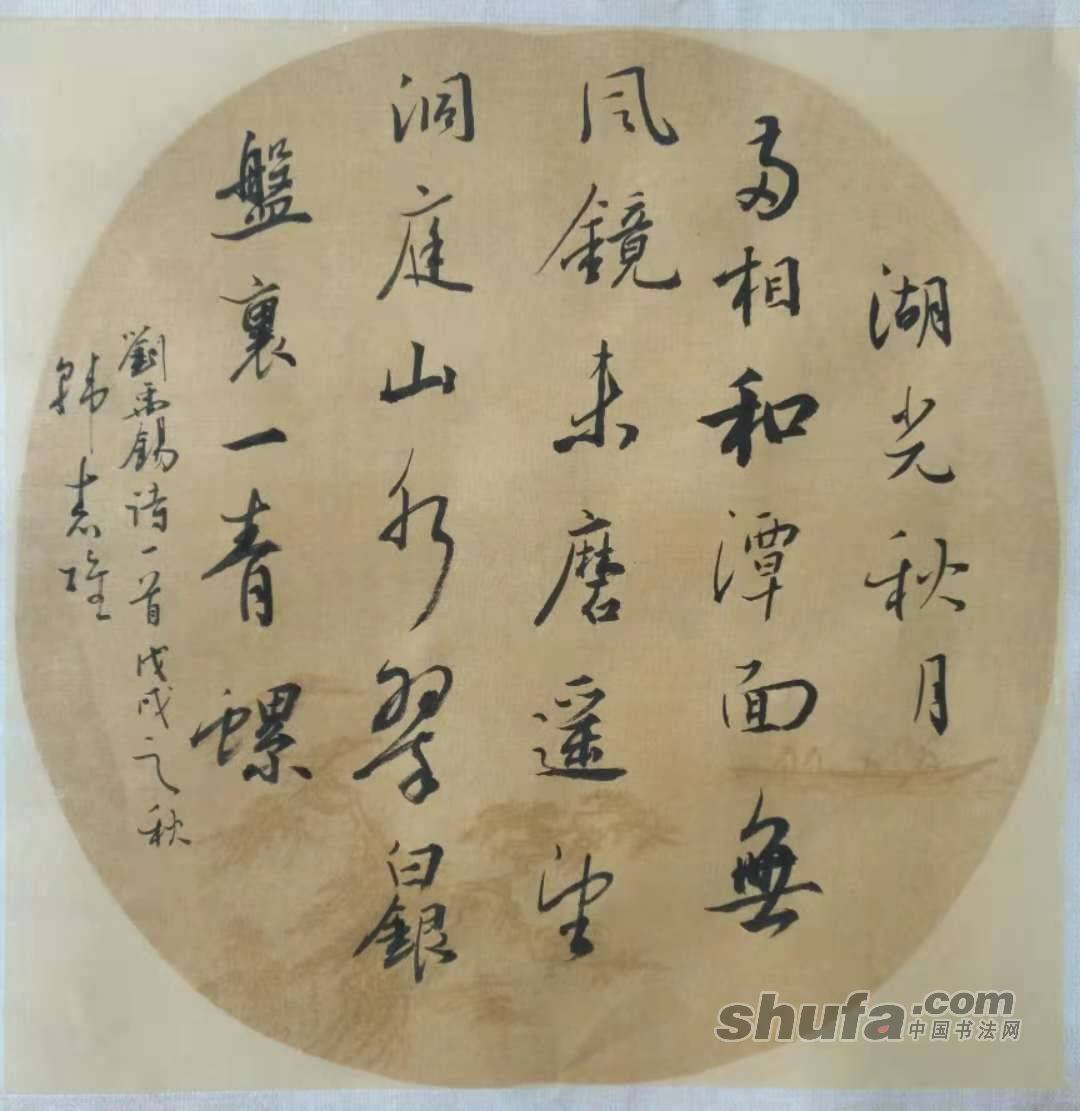 湖光秋月
兩相和潭面無
風鏡未磨遥望
洞庭山水翠白銀
盤裏一青螺
劉禹錫詩一首戊戌之秋
韩志
shufa.com
中国书法网